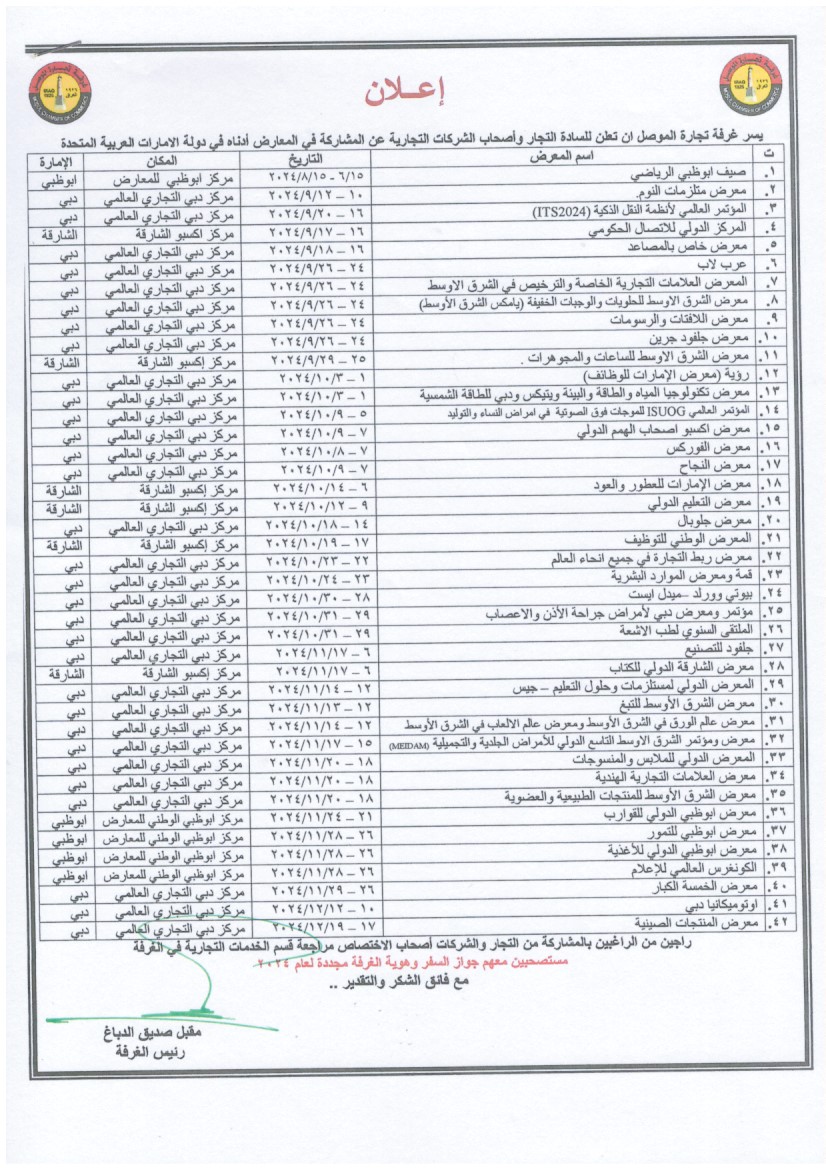 إعـلان
يسر غرفة تجارة الموصل ان تعلن للسادة التجار وأصحاب الشركات التجارية عن المشاركة في المعارض أدناه في دولة الامارات العربية المتحدة
ت اسم المعرض التاريخ المكان الإمارة
١. صيف ابوظبي الرياضي ٦/١٥ - ٢٠٢٤/٨/١٥ مركز ابوظبي للمعارض ابوظبي
٢. معرض متلزمات النوم. ١٠ – ٢٠٢٤/٩/١٢ مركز دبي التجاري العالمي دبي
٣. المؤتمر العالمي لأنظمة النقل الذكية (ITS2024) ١٦ – ٢٠٢٤/٩/٢٠ مركز دبي التجاري العالمي دبي
٤. المركز الدولي للاتصال الحكومي ١٦ – ٢٠٢٤/٩/١٧ مركز اكسبو الشارقة الشارقة
٥. معرض خاص بالمصاعد ١٦ – ٢٠٢٤/٩/١٨ مركز دبي التجاري العالمي دبي
٦. عرب لاب ٢٤ – ٢٠٢٤/٩/٢٦ مركز دبي التجاري العالمي دبي
٧. المعرض العلامات التجارية الخاصة والترخيص في الشرق الاوسط ٢٤ – ٢٠٢٤/٩/٢٦ مركز دبي التجاري العالمي دبي
٨. معرض الشرق الاوسط للحلويات والوجبات الخفيفة (يامكس الشرق الأوسط) ٢٤ – ٢٠٢٤/٩/٢٦ مركز دبي التجاري العالمي دبي
٩. معرض اللافتات والرسومات ٢٤ – ٢٠٢٤/٩/٢٦ مركز دبي التجاري العالمي دبي
١٠. معرض جلفود جرين ٢٤ – ٢٠٢٤/٩/٢٦ مركز دبي التجاري العالمي دبي
١١. معرض الشرق الاوسط للساعات والمجوهرات . ٢٥ – ٢٠٢٤/٩/٢٩ مركز إكسبو الشارقة الشارقة
١٢. رؤية (معرض الإمارات للوظائف) ١ – ٢٠٢٤/١٠/٣ مركز دبي التجاري العالمي دبي
١٣. معرض تكنولوجيا المياه والطاقة والبيئة ويتيكس ودبي للطاقة الشمسية ١ – ٢٠٢٤/١٠/٣ مركز دبي التجاري العالمي دبي
١٤. المؤتمر العالمي ISUOG للموجات فوق الصوتية في امراض النساء والتوليد ٥ – ٢٠٢٤/١٠/٩ مركز دبي التجاري العالمي دبي
١٥. معرض اكسبو اصحاب الهمم الدولي ٧ – ٢٠٢٤/١٠/٩ مركز دبي التجاري العالمي دبي
١٦. معرض الفوركس ٧ – ٢٠٢٤/١٠/٨ مركز دبي التجاري العالمي دبي
١٧. معرض النجاح ٧ – ٢٠٢٤/١٠/٩ مركز دبي التجاري العالمي دبي
١٨. معرض الإمارات للعطور والعود ٦ – ٢٠٢٤/١٠/١٤ مركز إكسبو الشارقة الشارقة
١٩. معرض التعليم الدولي ٩ – ٢٠٢٤/١٠/١٢ مركز إكسبو الشارقة الشارقة
٢٠. معرض جلوبال ١٤ – ٢٠٢٤/١٠/١٨ مركز دبي التجاري العالمي دبي
٢١. المعرض الوطني للتوظيف ١٧ – ٢٠٢٤/١٠/١٩ مركز إكسبو الشارقة الشارقة
٢٢. معرض ربط التجارة في جميع انحاء العالم ٢٢ – ٢٠٢٤/١٠/٢٣ مركز دبي التجاري العالمي دبي
٢٣. قمة ومعرض الموارد البشرية ٢٣ – ٢٠٢٤/١٠/٢٤ مركز دبي التجاري العالمي دبي
٢٤. بيوتي وورلد –ميدل ايست ٢٨ – ٢٠٢٤/١٠/٣٠ مركز دبي التجاري العالمي دبي
٢٥. مؤتمر ومعرض دبي لأمراض جراحة الأذن والاعصاب ٢٩ – ٢٠٢٤/١٠/٣١ مركز دبي التجاري العالمي دبي
٢٦. الملتقى السنوي لطب الاشعة ٢٩ – ٢٠٢٤/١٠/٣١ مركز دبي التجاري العالمي دبي
٢٧. جلفود للتصنيع ٦ – ٢٠٢٤/١١/١٧ مركز دبي التجاري العالمي دبي
٢٨. معرض الشارقة الدولي للكتاب ٦ – ٢٠٢٤/١١/١٧ مركز إكسبو الشارقة الشارقة
٢٩. المعرض الدولي لمستلزمات وحلول التعليم – جيس ١٢ – ٢٠٢٤/١١/١٤ مركز دبي التجاري العالمي دبي
٣٠. معرض الشرق الأوسط للتبغ ١٢ – ٢٠٢٤/١١/١٣ مركز دبي التجاري العالمي دبي
٣١. معرض عالم الورق في الشرق الأوسط ومعرض عالم الالعاب في الشرق الأوسط ١٢ – ٢٠٢٤/١١/١٤ مركز دبي التجاري العالمي دبي
٣٢. معرض ومؤتمر الشرق الاوسط التاسع الدولي للأمراض الجلدية والتجميلية (MEIDAM) ١٥ – ٢٠٢٤/١١/١٧ مركز دبي التجاري العالمي دبي
٣٣. المعرض الدولي للملابس والمنسوجات ١٨ – ٢٠٢٤/١١/٢٠ مركز دبي التجاري العالمي دبي
٣٤. معرض العلامات التجارية الهندية ١٨ – ٢٠٢٤/١١/٢٠ مركز دبي التجاري العالمي دبي
٣٥. معرض الشرق الأوسط للمنتجات الطبيعية والعضوية ١٨ – ٢٠٢٤/١١/٢٠ مركز دبي التجاري العالمي دبي
٣٦. معرض ابوظبي الدولي للقوارب ٢١ – ٢٠٢٤/١١/٢٤ مركز ابوظبي الوطني للمعارض ابوظبي
٣٧. معرض ابوظبي للتمور ٢٦ – ٢٠٢٤/١١/٢٨ مركز ابوظبي الوطني للمعارض ابوظبي
٣٨. معرض ابوظبي الدولي للأغذية ٢٦ – ٢٠٢٤/١١/٢٨ مركز ابوظبي الوطني للمعارض ابوظبي
٣٩. الكونغرس العالمي للإعلام ٢٦ – ٢٠٢٤/١١/٢٨ مركز ابوظبي الوطني للمعارض ابوظبي
٤٠. معرض الخمسة الكبار ٢٦ – ٢٠٢٤/١١/٢٩ مركز دبي التجاري العالمي دبي
٤١. اوتوميكانيا دبي ١٠ – ٢٠٢٤/١٢/١٢ مركز دبي التجاري العالمي دبي
٤٢. معرض المنتجات الصينية ١٧ – ٢٠٢٤/١٢/١٩ مركز دبي التجاري العالمي دبي
راجين من الراغبين بالمشاركة من التجار والشركات أصحاب الاختصاص مراجعة قسم الخدمات التجارية في الغرفة
مستصحبين معهم جواز السفر وهوية الغرفة مجددة لعام ٢٠٢٤
مع فائق الشكر والتقدير ..
مقبل صديق الدباغ
رئيس الغرفة